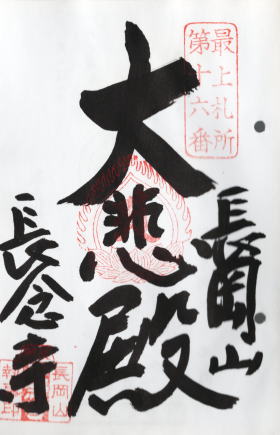 最上札所
第十六番
長岡山
大悲殿
長念寺
長岡山